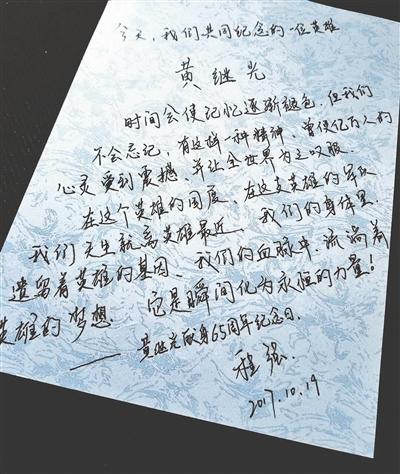 今天,我们共同纪念的一位英雄
黄继光
时间会使记忆逐渐褪色,但我们
不会忘记,有这样一种精神,曾使亿万人的
心灵受到震撼,并让全世界为之叹服.
在这个英雄的国度、在这支英雄的军队
我们天生就离英雄最近、我们的身体里、
遗留着英雄的基因、我们的血脉中.流淌着
英雄的梦想. 它是瞬间化为永恒的力量!
——黄继光献身65周年纪念日.
程强.
2017.10.19